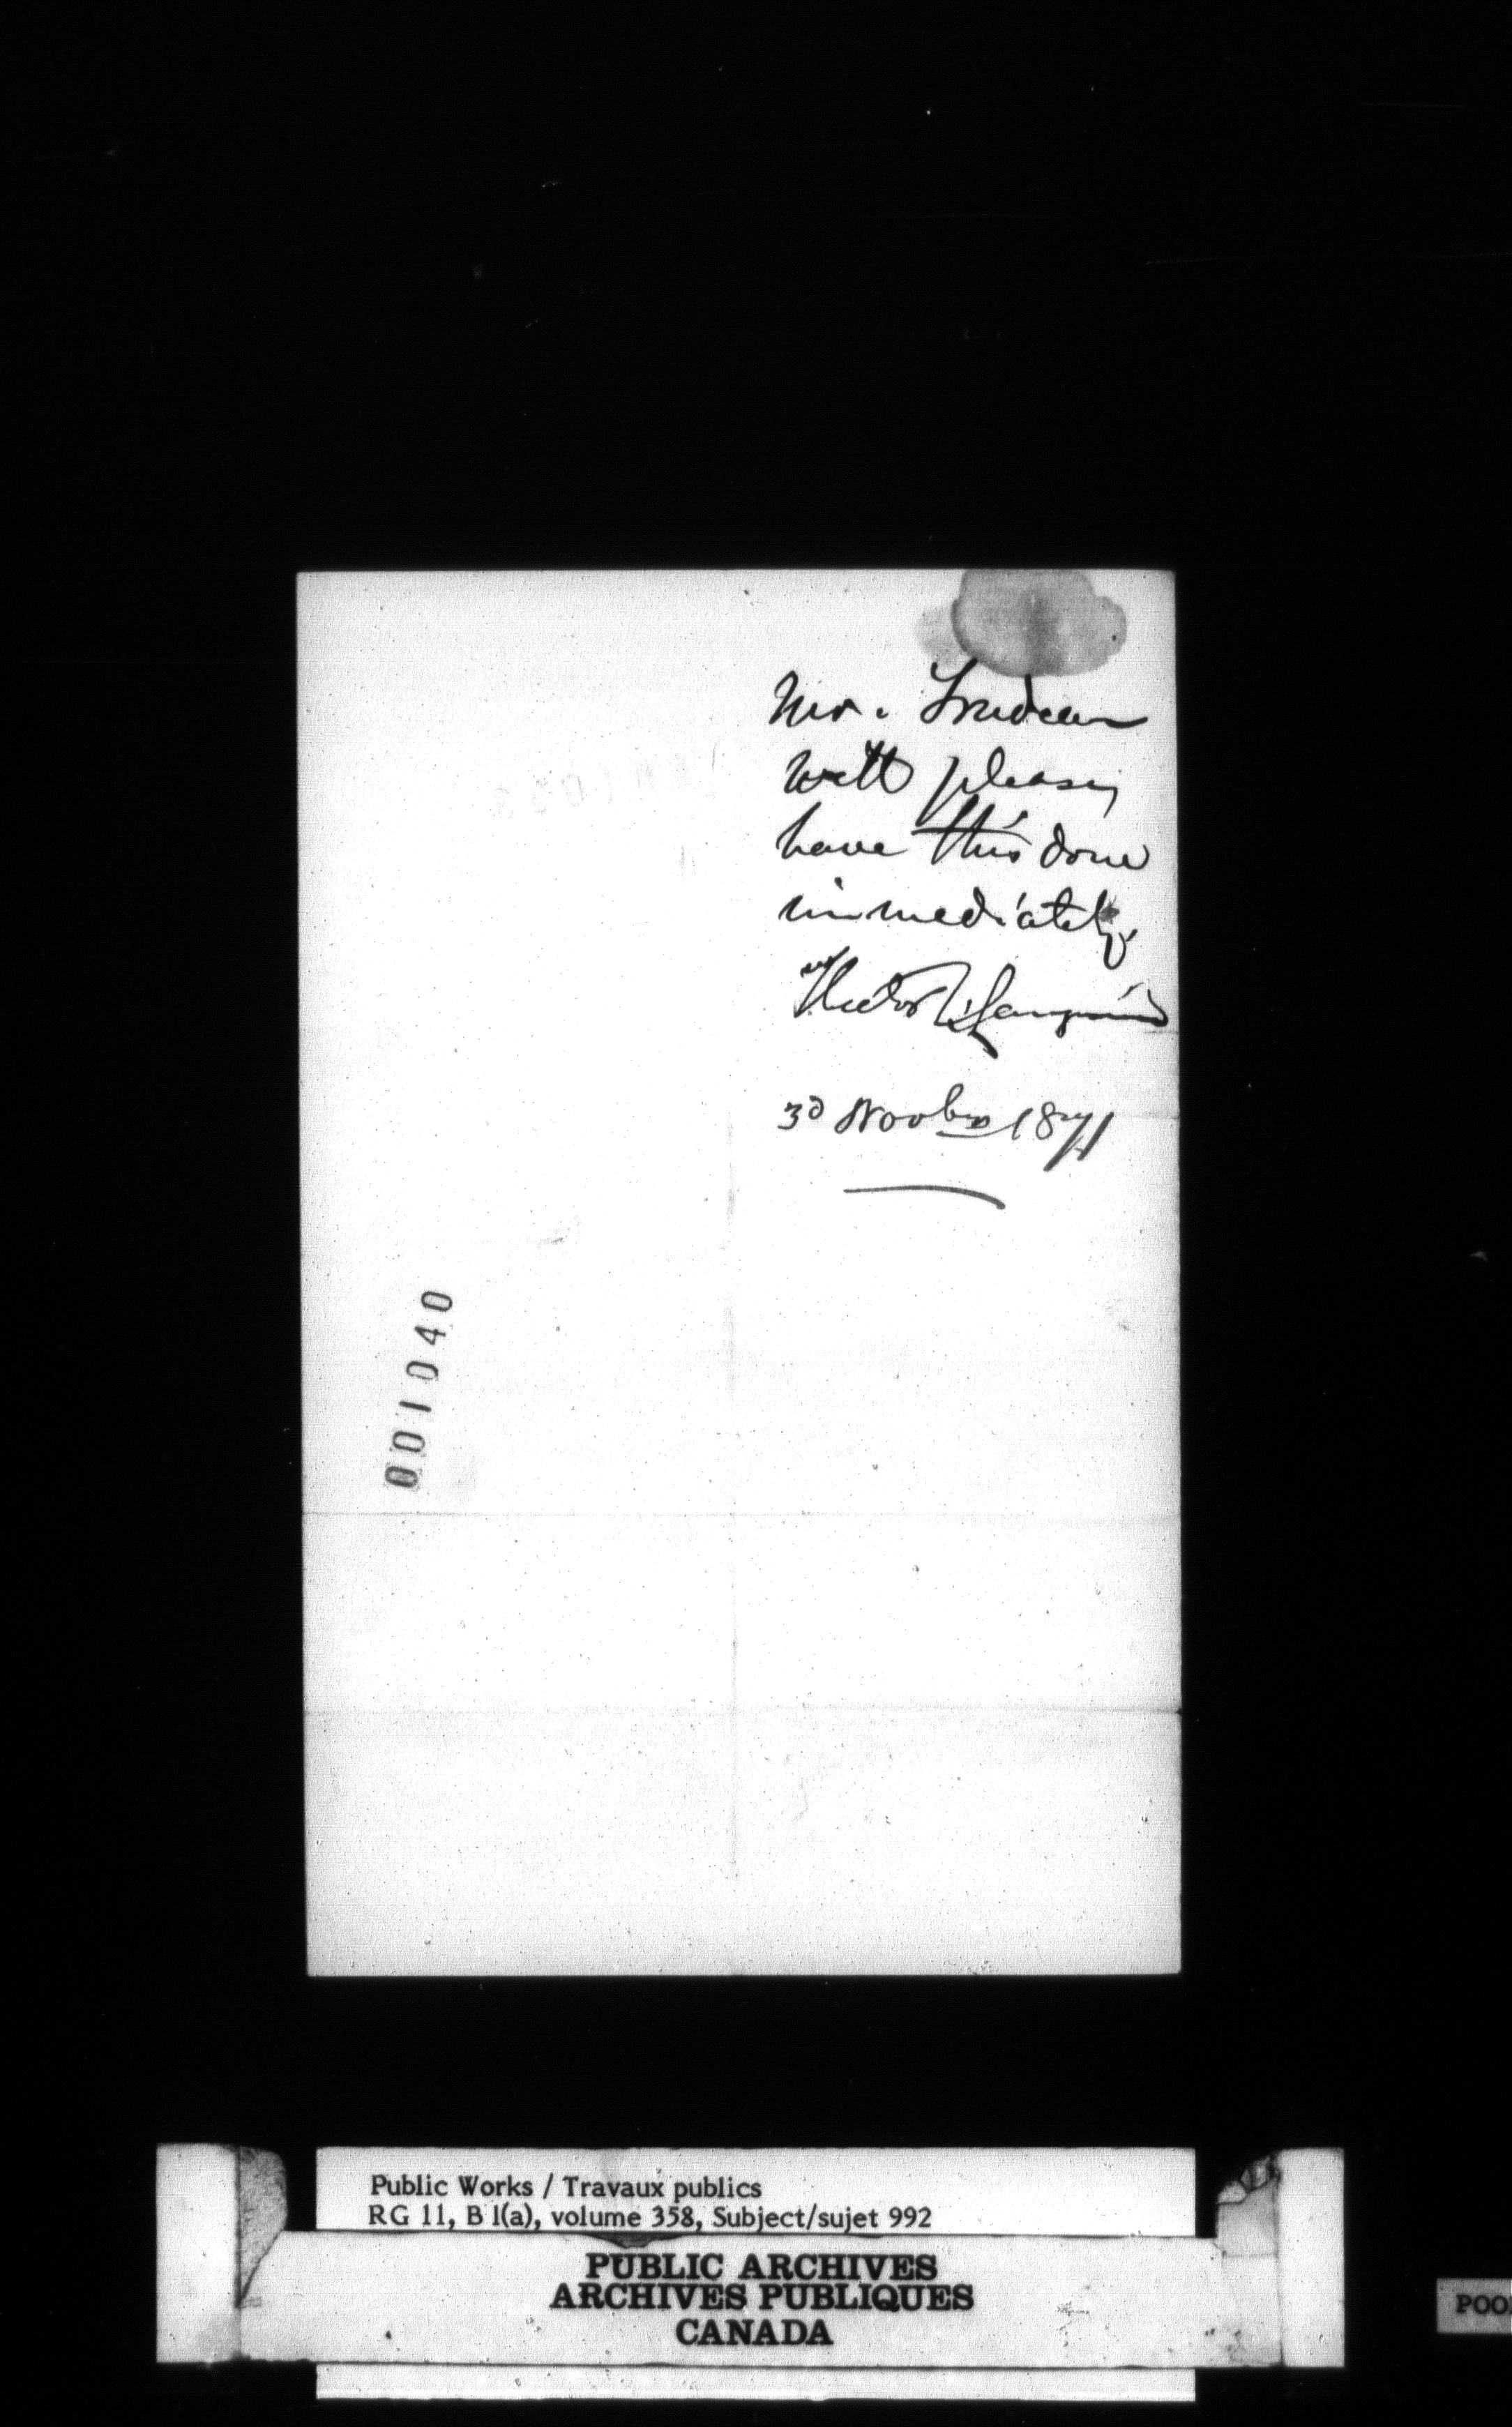 Mr. Trudeau
will please
have this done
immediately.
Hector L. Langevin
3d Novber 1871
001040
Public Works / Travaux publics
RG 11, B 1(a), volume 358, Subject/sujet 992
PUBLIC ARCHIVES
ARCHIVES PUBLIQUES
CANADA